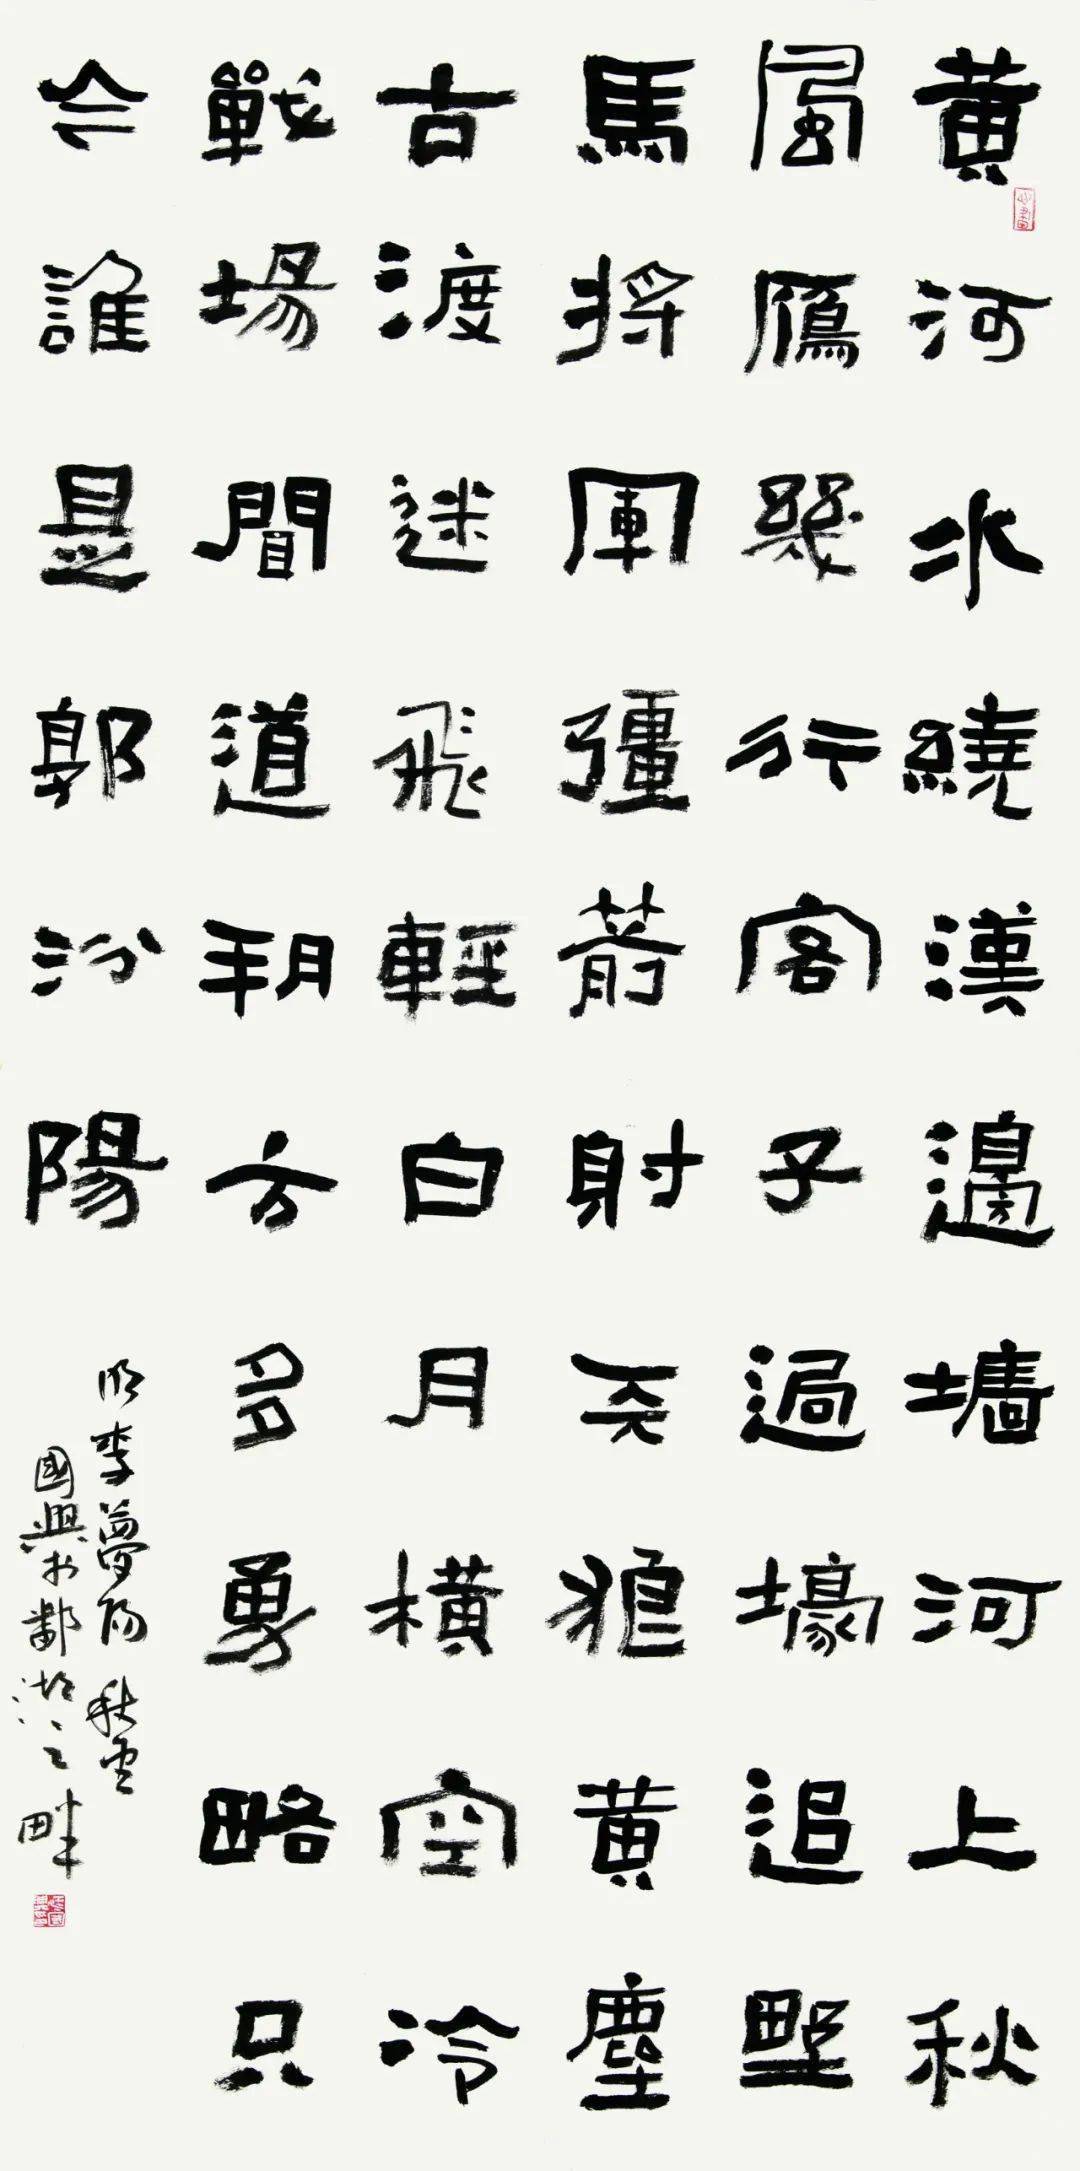 黄河水繞漢邊墻河上秋
風鴈幾行客子過壕追野
馬將軍彊箭射天狼黄塵
古渡迷飛輕白月橫空冷
戰場間道朔方多勇略只
今誰是郭汾陽
明李夢陽 秋
國興於鄱湖之畔